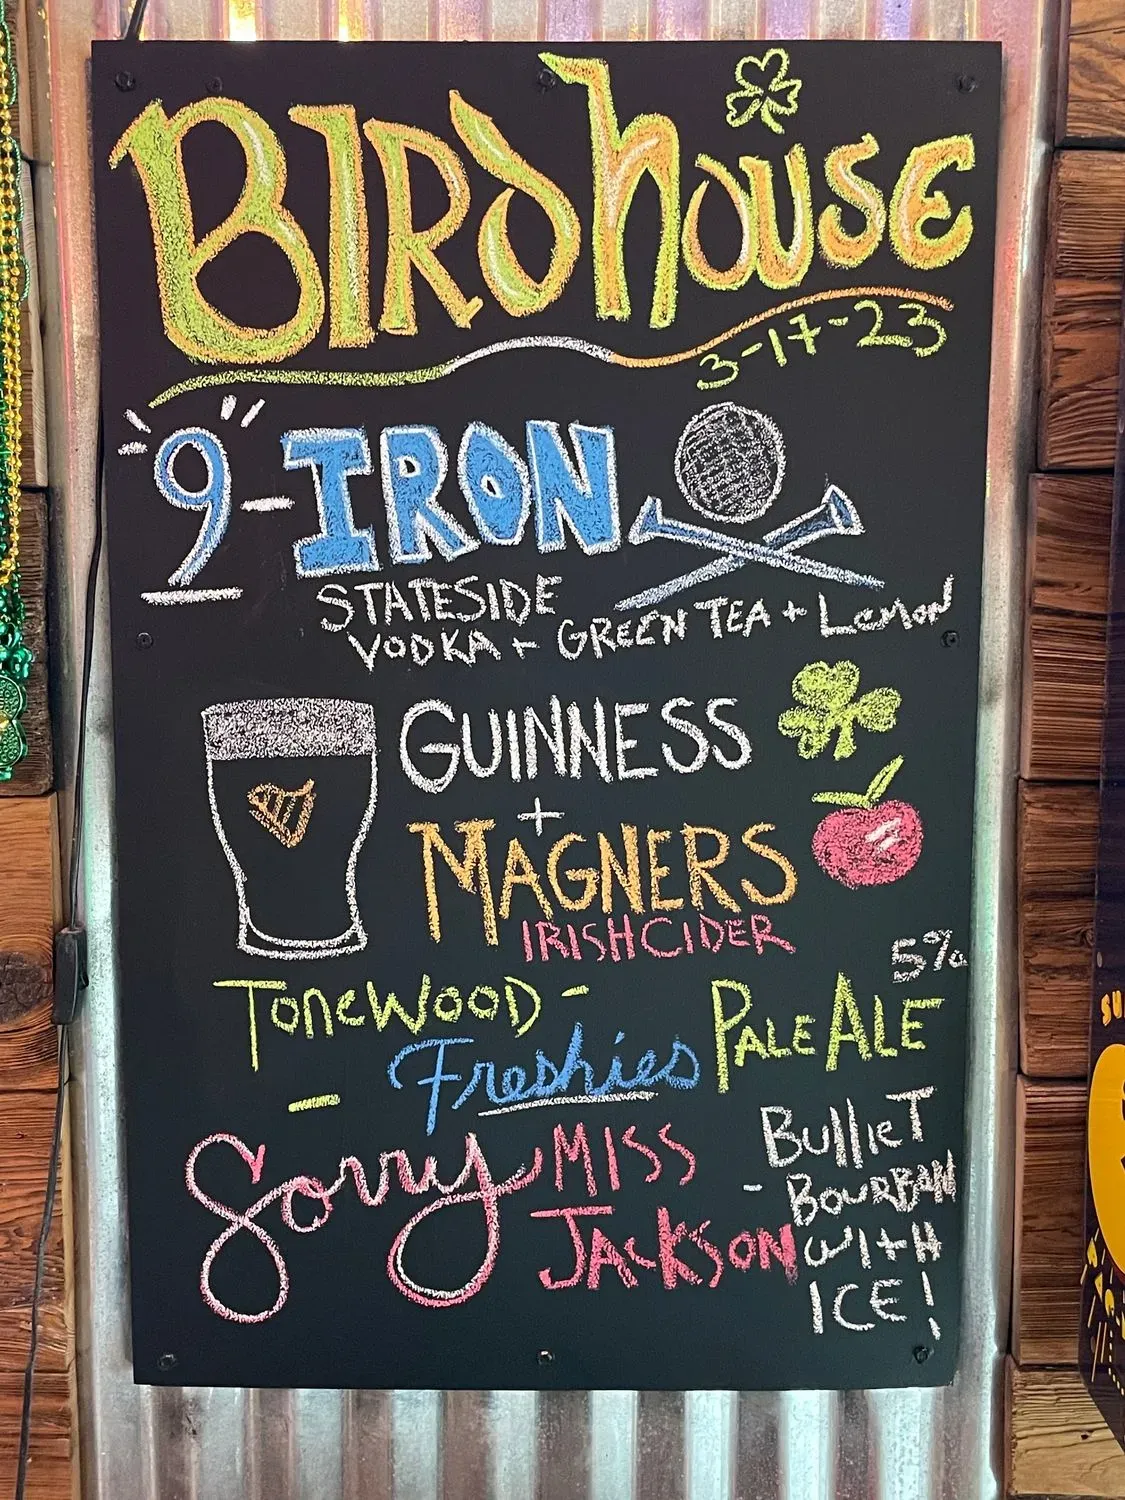 BIRdhouse
3-17-23
9-IRON
STATESIDE
VODKA + GREEN TEA + LEMON
GUINNESS
+
MAGNERS
IRISH CIDER
5%
TONEWOOD - PALE ALE
- Freshies
Sorry MISS
JACKSON
- BullieT
BOURBAN
WITH
ICE!